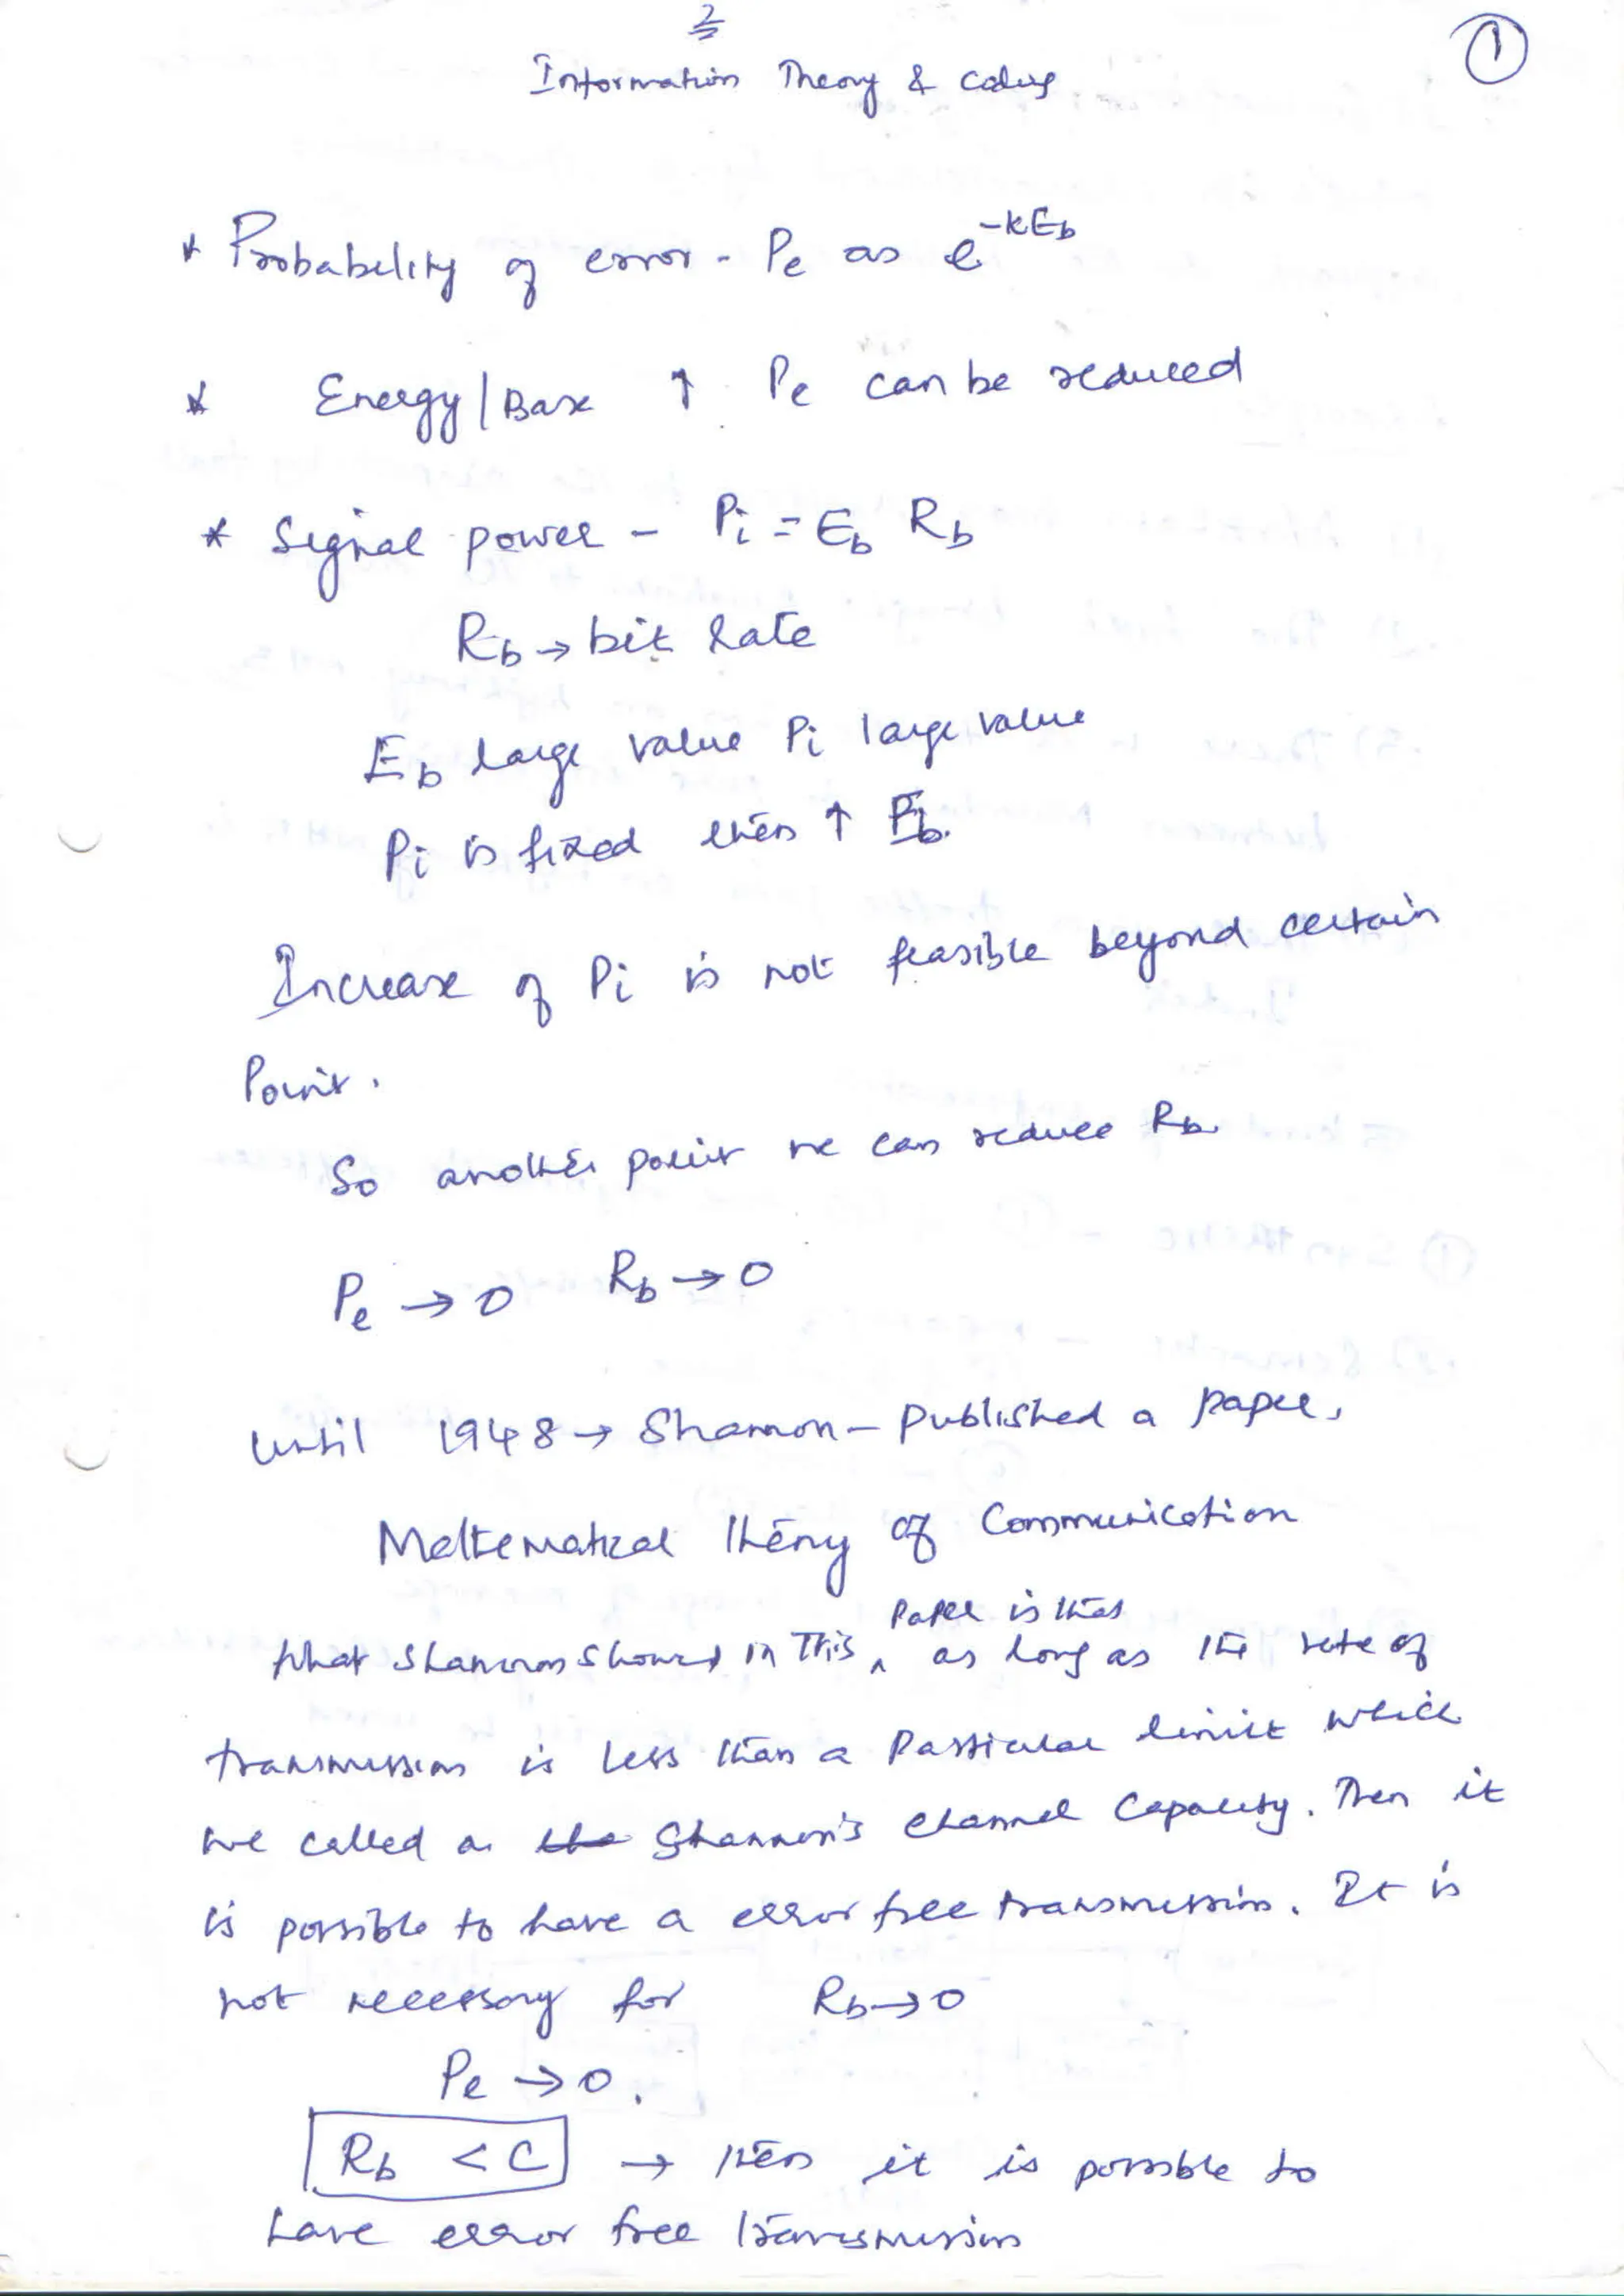 2
①
Information Theory & Coding
* Probability of error - Pe as e^-kEb
* Energy/Base ↑ Pe can be reduced
* Signal power - Pi = Eb Rb
Rb → bit rate
Eb large value Pi large value
Pi is fixed then ↑
Increase of Pi is not feasible beyond certain
Point.
So another point we can reduce Rb.
Pe → 0 Rb → 0
Until 1948 → Shannon - published a paper.
Mathematical theory of Communication
paper is that
What Shannon showed in This ^ as long as the rate of
transmission is less than a Particular limit which
we called a the Shannon's channel Capacity. Then it
is possible to have a error free transmission. It is
not necessary for Rb → 0
Pe → 0.
Rb < C → then it is possible to
have error free transmission